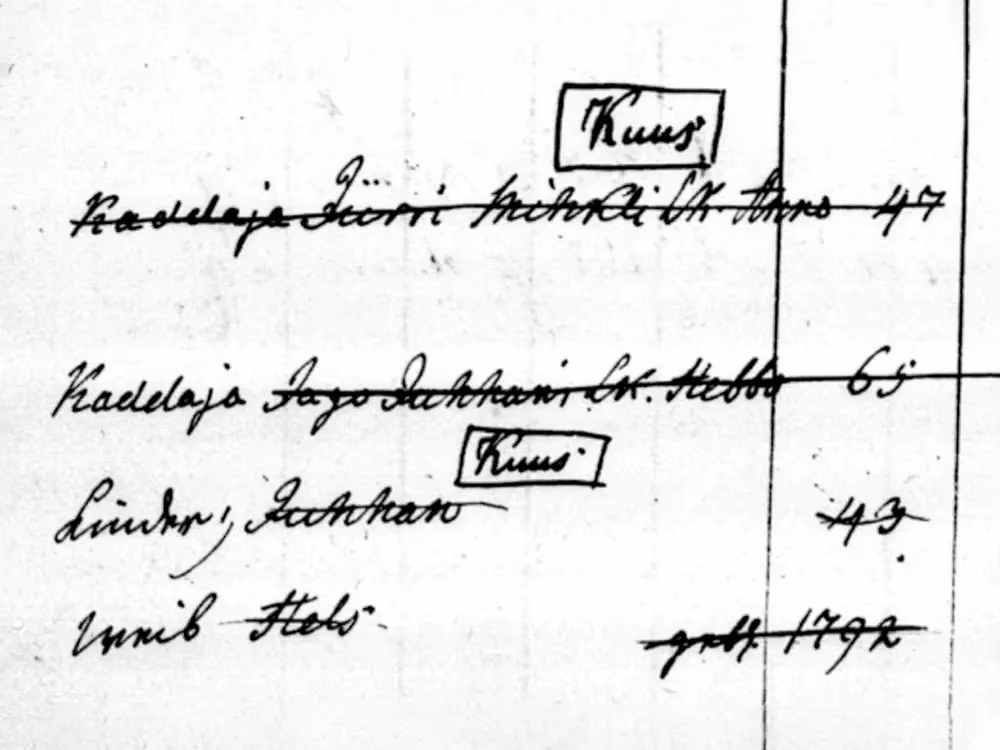 Kuus
Kaddaja Jürri Mihkli LK. Anno 47
Kaddaja Jago Juhhani LK. Hebbo 65
Kuus
Kinder; Juhhan 43
Weib Hels
gest. 1792